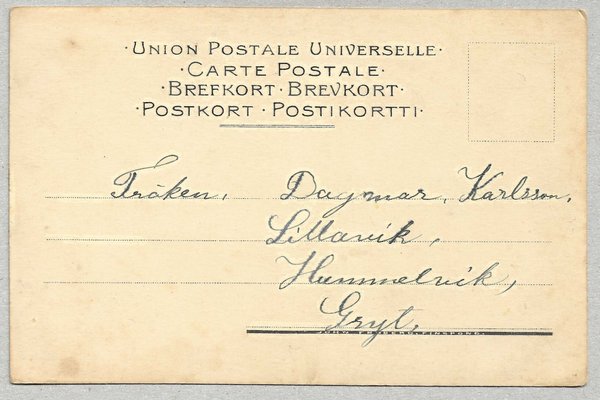 ·UNION POSTALE UNIVERSELLE·
·CARTE POSTALE·
·BREFKORT·BREVKORT·
·POSTKORT·POSTIKORTTI·
Fröken, Dagmar, Karlsson,
Lillavik,
Hummelvik,
Gryt,